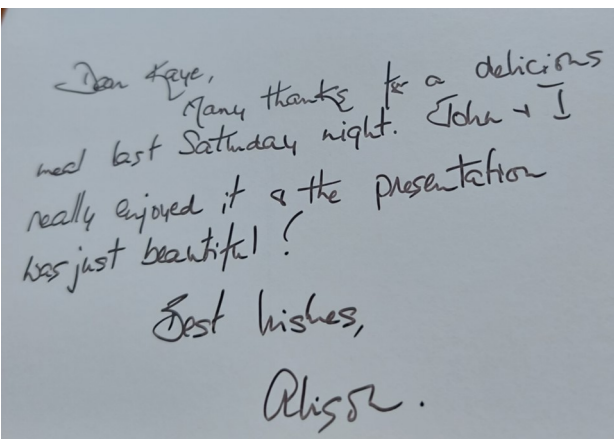 Dear Kaye,
Many thanks for a delicious
meal last Saturday night. John + I
really enjoyed it & the presentation
was just beautiful!
Best wishes,
Alison.